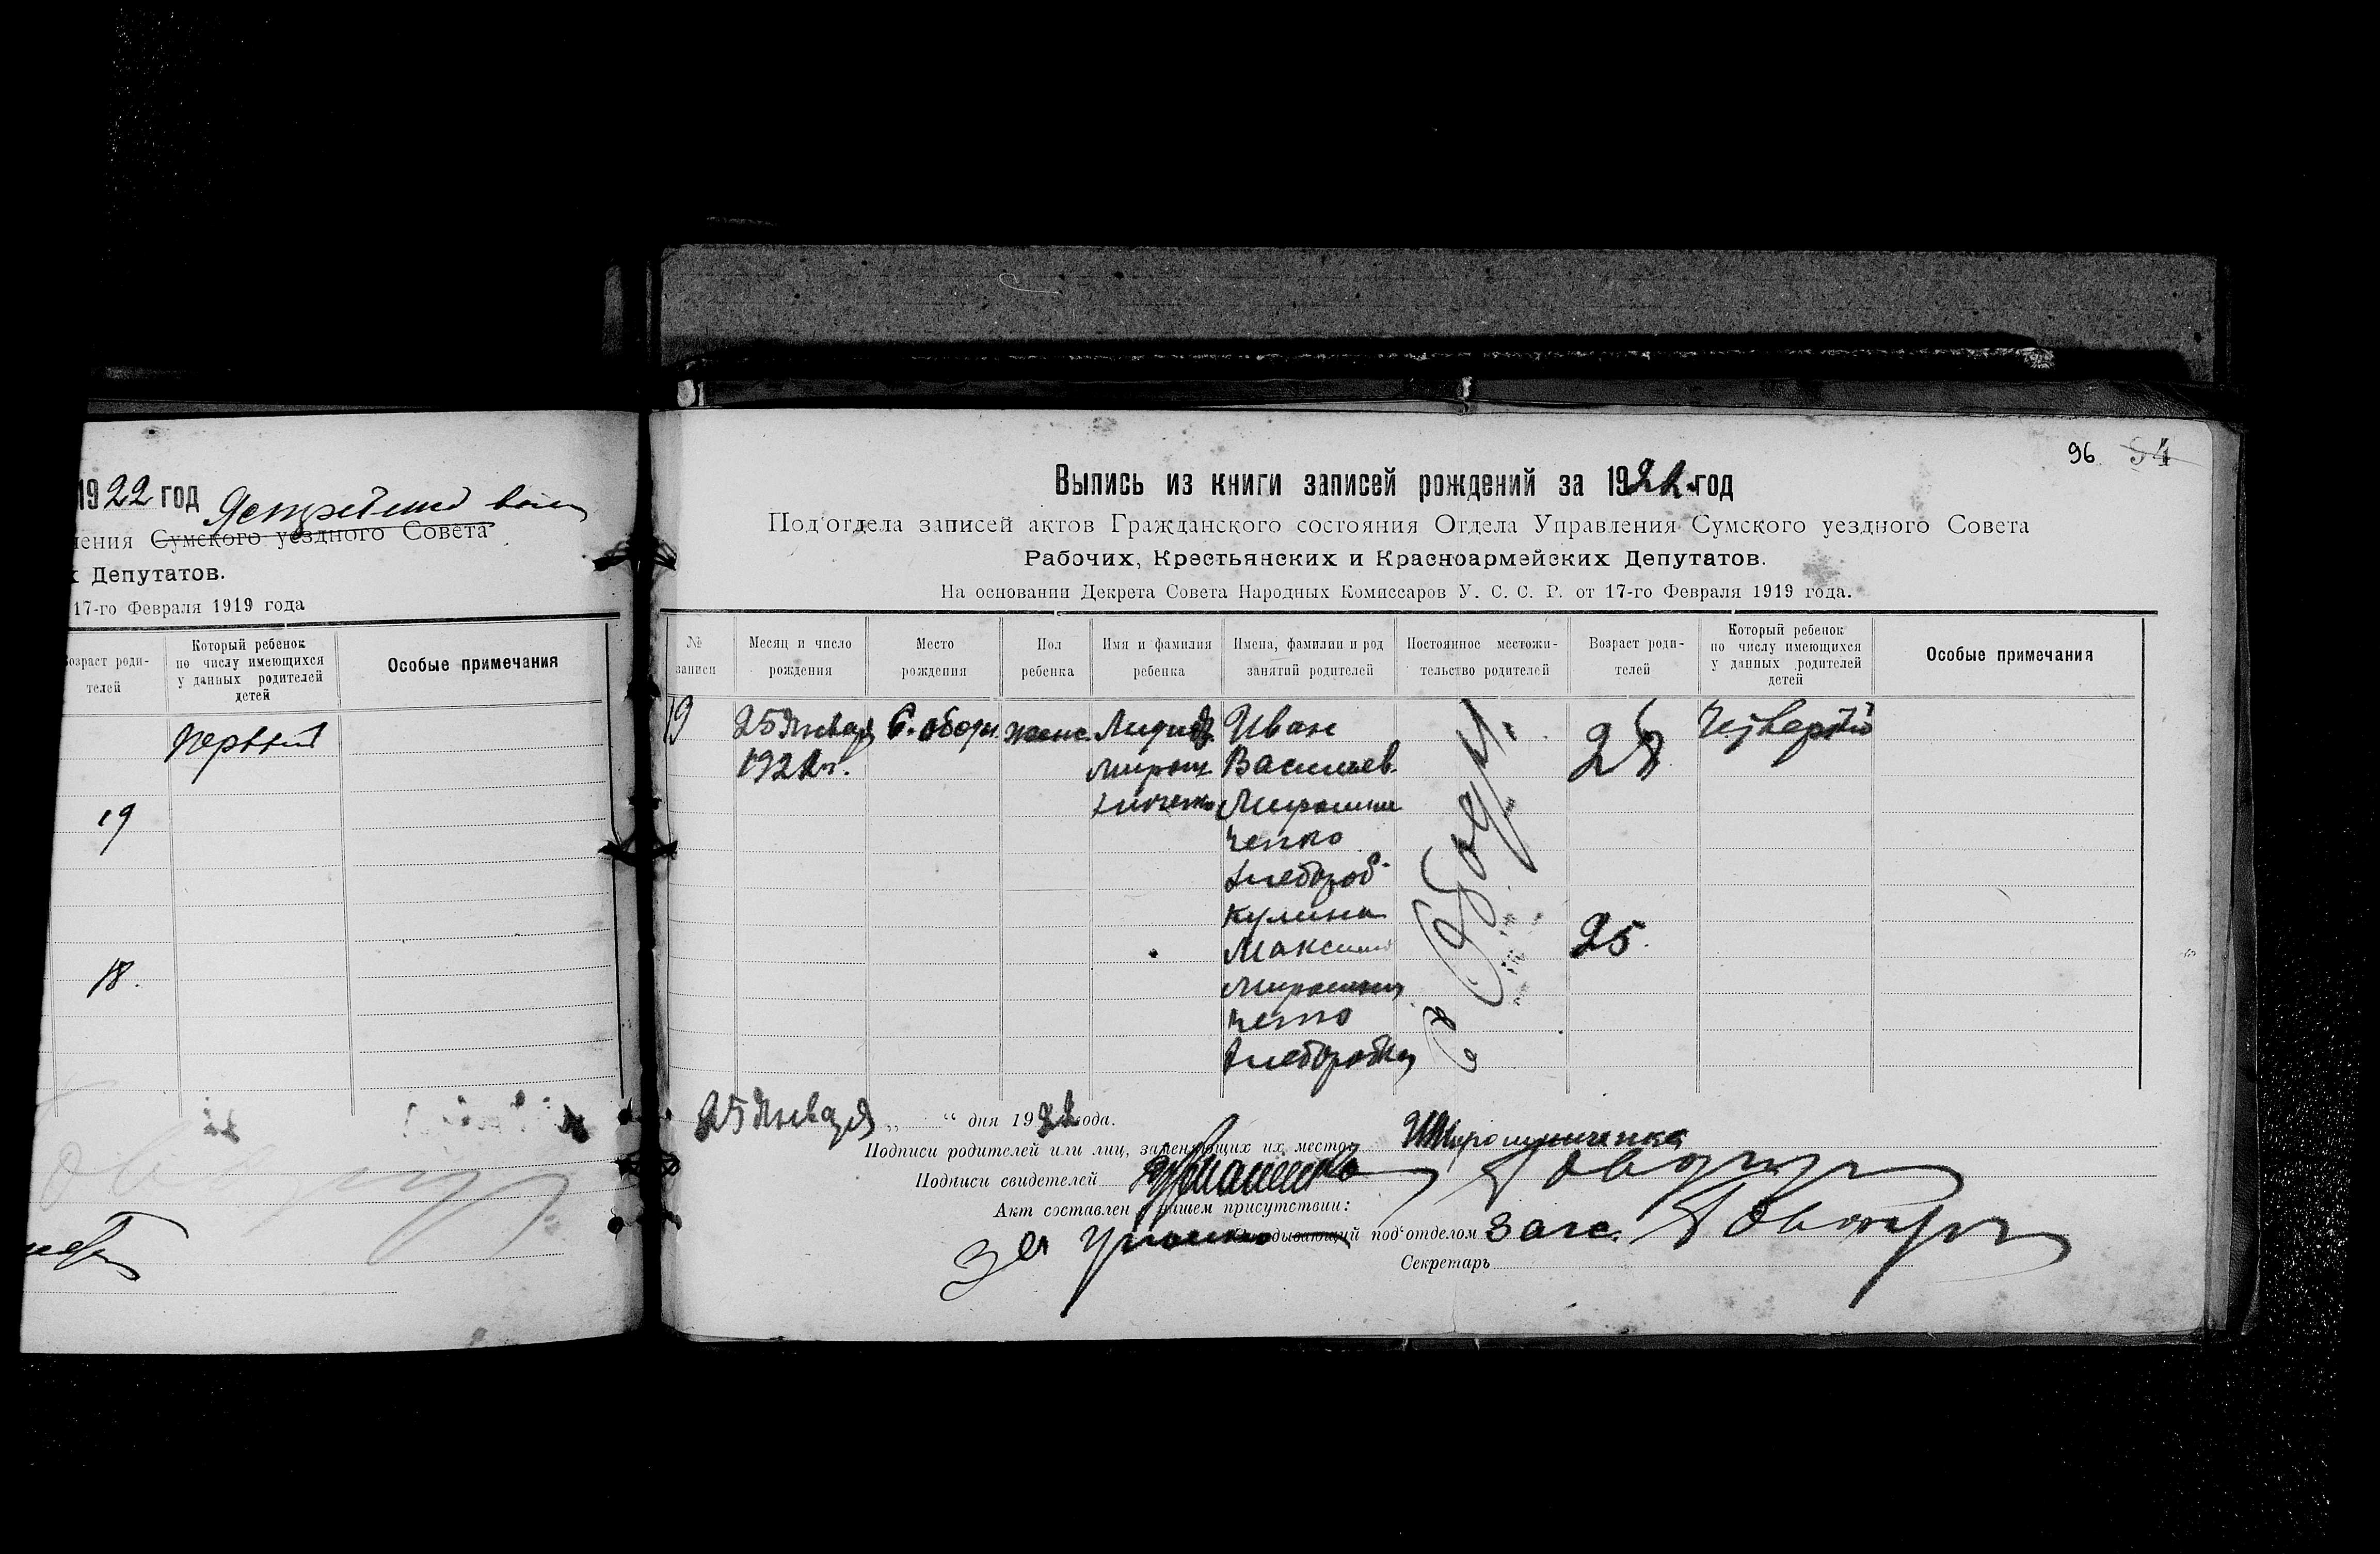 1922 год
ления Сумского уездного Совета
х Депутатов.
17-го Февраля 1919 года
Возраст роди-
телей
Который ребенок
по числу имеющихся
у данных родителей
детей
Особые примечания
первый
19
18.
96 94
Выпись из книги записей рождений за 1922 год
Под‘отдела записей актов Гражданского состояния Отдела Управления Сумского уездного Совета
Рабочих, Крестьянских и Красноармейских Депутатов.
На основании Декрета Совета Народных Комиссаров У. С. С. Р. от 17-го Февраля 1919 года.
№
записи
Месяц и число
рождения
Место
рождения
Пол
ребенка
Имя и фамилия
ребенка
Имена, фамилии и род
занятий родителей
Постоянное местожи-
тельство родителей
Возраст роди-
телей
Который ребенок
по числу имеющихся
у данных родителей
детей
Особые примечания
19 25 Января женс. Лидия Иван 26 Четвертый
1922 г. Мирош Васильев
ниченко Мирошни
ченко
хлебороб
Кулина
Максим 25.
Мирошни
ченко
хлеборобка
25 Января „ “ дня 1922 года.
Подписи родителей или лиц, заменяющих их место Мирошниченко
Подписи свидетелей
Акт составлен в нашем присутствии:
Заведывающий под‘отделом Загс.
Секретарь